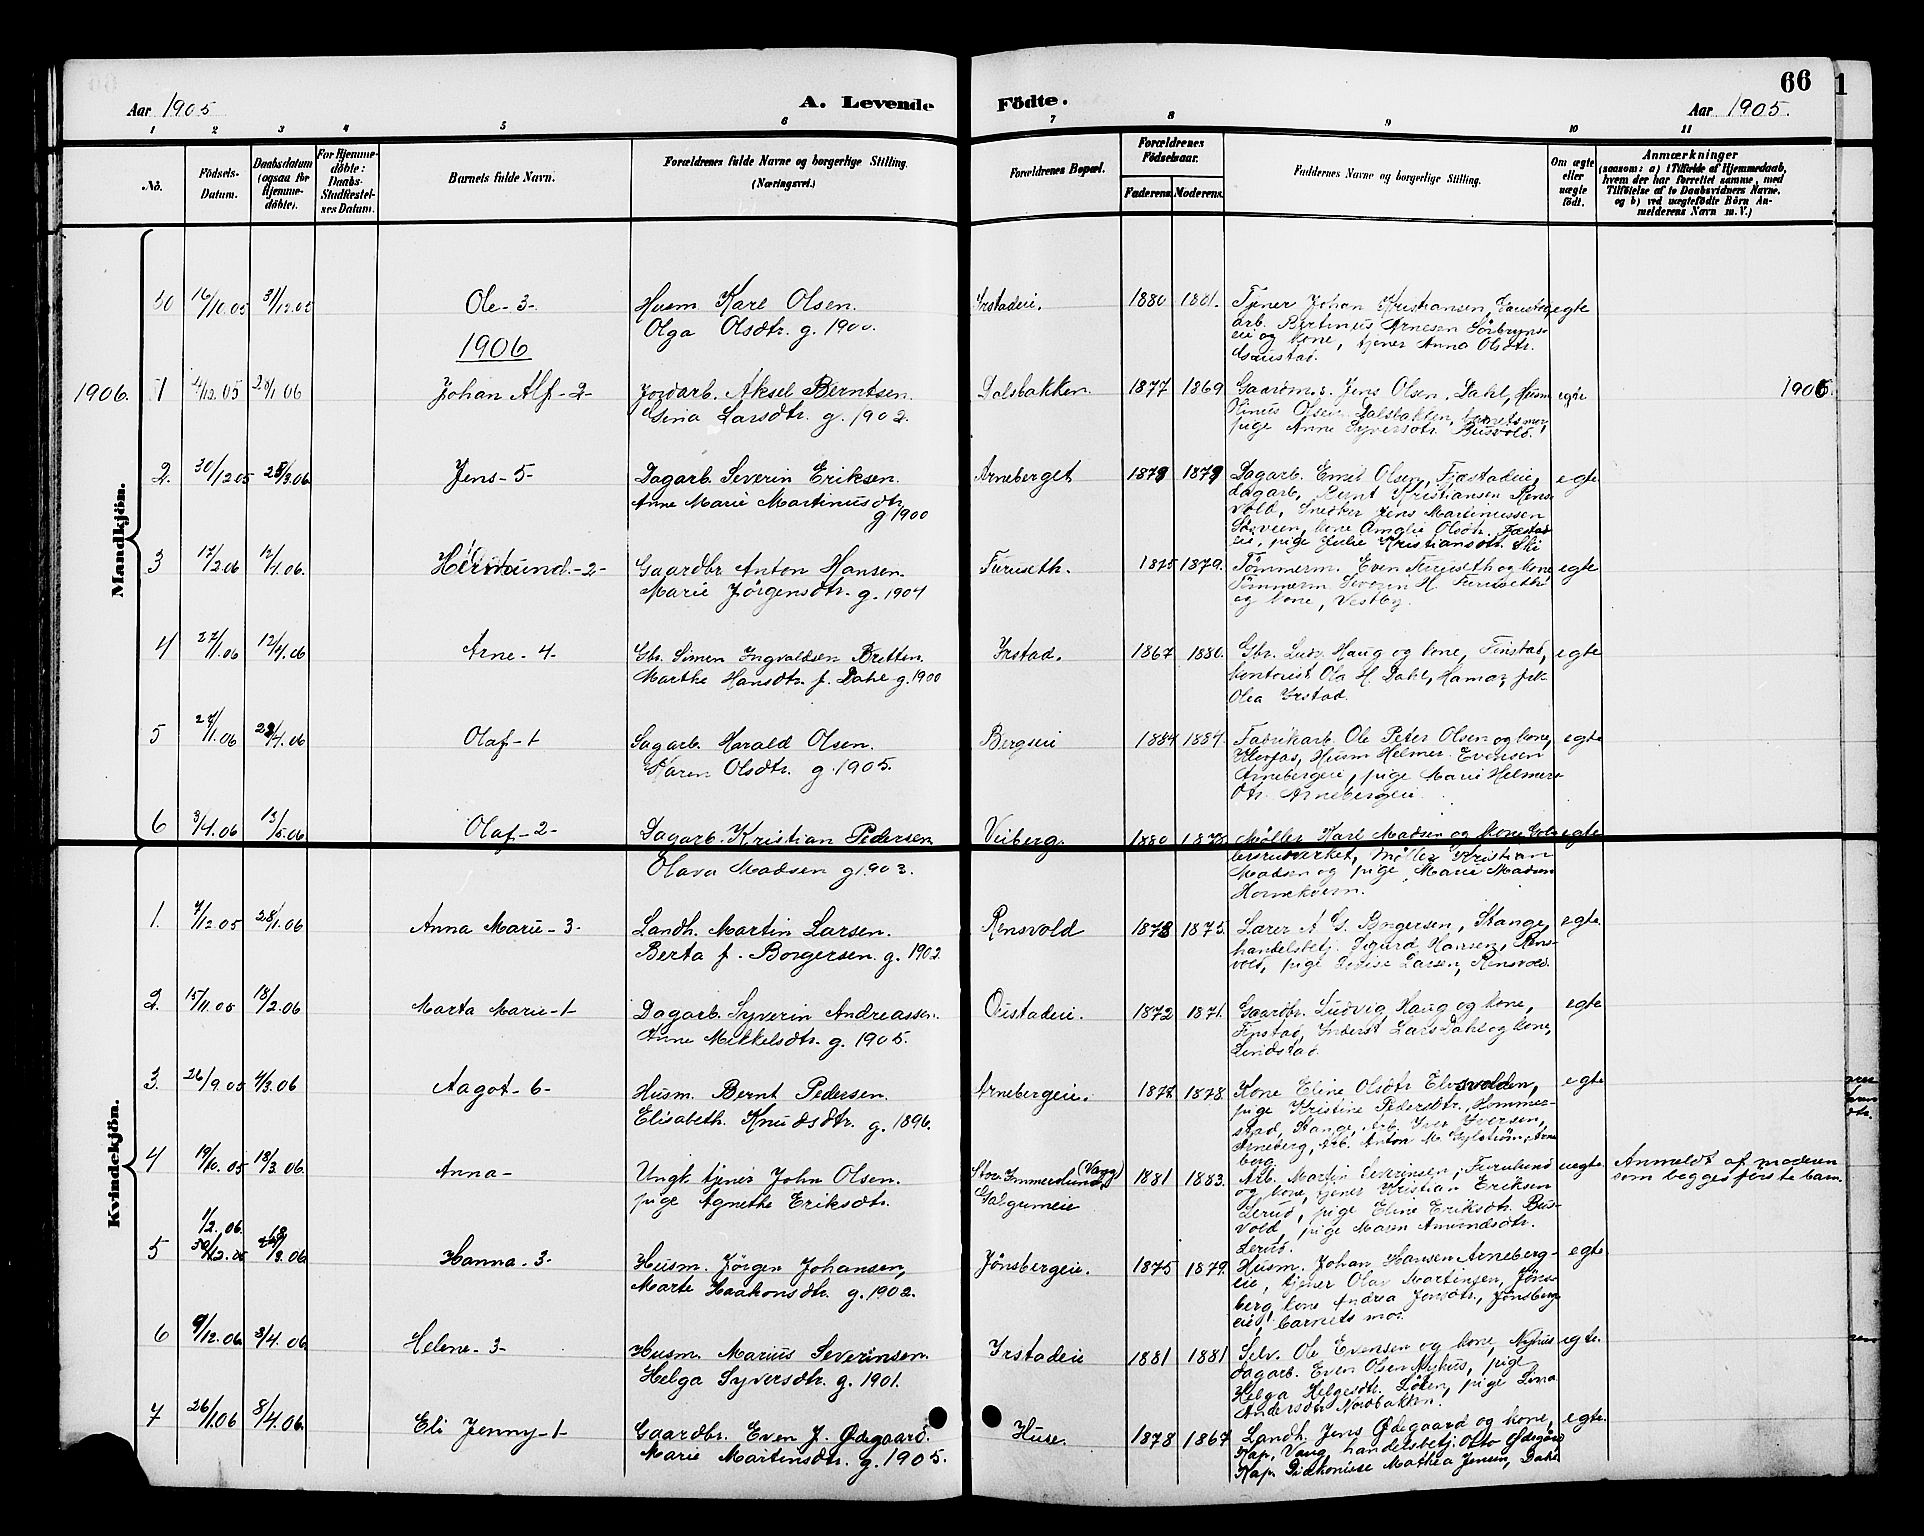 66
Aar 1905
A. Levende
Födte.
Aar 1905.
1 2 3 4 5 6 7 8 9 10 11
No.
Födsels-
Datum.
Daabsdatum
(ogsaa for
Hjemme-
döbte).
For Hjemme-
döbte:
Daabs-
Stadfæstel-
ses Datum.
Barnets fulde Navn.
Forældrenes fulde Navne og borgerlige Stilling.
(Næringsvei.)
Forældrenes Bopæl.
Forældrenes
Födselsaar.
Faderens. Moderens.
Faddernes Navne og borgerlige Stilling.
Om ægte
eller
uægte
födt.
Anmærkninger
(saasom: a) i Tilfælde af Hjemmedaab,
hvem der har forrettet samme, med
Tilföielse af to Daabsvidners Navne,
og b) ved uægtefödte Börn An-
melderens Navn m. V.)
Mandkjön.
16/10.05 31/12.05 Ole - 3 -
Husm. Karl Olsen.
Olga Olsdtr. g. 1900.
Irstadeie. 1880
Tjener Johan Kristiansen,
arb. Bertinius Arnesen
ei og kone, tjener Anna Olsdtr.
egte
1906
1906. 1 20/1 06 Johan Alf - 2 -
Jordarb. Aksel Berntsen.
Larsdtr. g. 1902.
Dalsbakken. 1877 1869
Gaardm. s. Jens Olsen, Dahl, Husm
Olsen Dalsbakken,
pige Anne Syversdtr. Busvold.
egte
1906.
2. 30/12 05 25/3.06. Jens - 5 -
Dagarb. Severin Eriksen.
Anne Marie Martinusdtr.
g 1900
Arneberget
Dagarb. Emil Olsen, Fjæstadeie,
dagarb. Bernt Kristiansen Rens-
vold, Snedker Jens Martinussen
kone Amalie Olsdtr.
eie, pige Julie Kristiansdtr. Ski
egte
3 17/2.06 Hermund. - 2 -
Gaardbr. Anton Hansen.
Marie Jörgensdtr. g. 1904
Furuseth. 1875 1879.
Tömmerm. Even Furuseth og kone
Tömmerm Severin H. Furuseth
og kone, Vestby.
egte
4 27/1.06 12/4.06 Arne - 4 -
Gbr. Simen Ingvaldsen Bretten.
Marthe Hansdtr. f. Dahl g. 1900
Irstad. 1867 1880.
Gbr. Ludv. Haug og kone, Finstad,
kontorist Ola H. Dahl, Hamar, frk
Olea Irstad.
egte
5 27/1.06 22/4.06 Olaf - 1
Sagarb. Harald Olsen.
Karen Olsdtr. g. 1905.
Bergseie 1884 1884.
Fabrikarb. Ole Peter Olsen og kone,
Klevfos, Husm Helmer Evensen
Arnebergeie, pige Marie Helmers-
dtr. Arnebergeie.
egte
6 3/4.06 13/5.06 Olaf - 2 -
Dagarb. Kristian Pedersen
Olava Madsen g. 1903.
Veiberg. 1880
Møller Karl Madsen og kone
møller Kristian
Madsen og pige Marie Madsen
Hornekvern.
egte
Kvindekjön.
1. 7/12 05 28/1.06 Anna Marie - 3 -
Landh. Martin Larsen.
Berta f. Borgersen g. 1902.
Rensvold 1873 1875.
Lærer A G. Borgersen, Stange,
handelsbetj. Sigurd Hansen, Rens-
vold, pige Louise Larsen, Rensvold.
egte.
2. 15/11.05 18/2.06 Marta Marie - 1
Dagarb. Syverin Andreassen.
Anne Mikkelsdtr. g. 1905.
Oustadeie. 1872 1871.
Gaardbr. Ludvig Haug og kone,
Finstad, Inderst Lars Dahl og kone,
Lindstad.
egte
3. 26/9.05 4/3.06 Aagot - 6 -
Husm. Bernt Pedersen.
Elisabeth Knudsdtr. g. 1896.
Arnebergeie. 1872 1878.
Kone Eline Olsdtr Elvsvolden,
pige Kristine Pedersdtr. Hommer-
stad, Stange, Arb. Iver Iversen,
Arneberg, Arb. Anton M. Sylström, Arne
berg
egte
4 19/10.05 18/3.06 Anna -
Ungk. tjener John Olsen.
pige Agnethe Eriksdtr.
Stor Immerslund (Vang)
Galgumeie
1881 1883.
Arb. Martin Severinsen, Furulund
og kone, tjener Kristian Eriksen
Lerud, pige Eline Eriksdtr. Bus-
vold, pige Maren Amundsdtr.
Lerud.
uegte.
Anmeldt af moderen
som begges förste barn.
5 1/2.06. 18/3.06 Hanna - 3 -
Husm. Jörgen Johansen,
Marte Haakonsdtr. g. 1902.
Jönsbergeie. 1875 1879.
Husm. Johan Hansen Arneberg-
eie, tjener Olav Martinsen, Jöns-
berg, kone Andrea Jonsdtr., Jönsberg
eie, barnets mor.
egte
6 9/12.06. 3/4.06 Helene - 3 -
Husm. Marius Severinsen.
Helga Syversdtr. g. 1901.
Irstadeie 1881 1881
Selv. Ole Evensen og kone, Nyhus
dagarb. Even Olsen Nyhus, pige
Helga Helgesdtr. Löten, pige Lina
Andersdtr Nordbakken.
egte.
7 26/1.06 8/4.06 Eli Jenny - 1
Gaardbr. Even J. Ödegaard.
Marie Martinsdtr. g. 1905.
Huse. 1878 1867
Landh. Jens Ödegaard og kone,
Kap, Vang, handelsbetj. Otto Ödegård
Kap. Diakonisse Mathea Jensen, Dahl
egte.